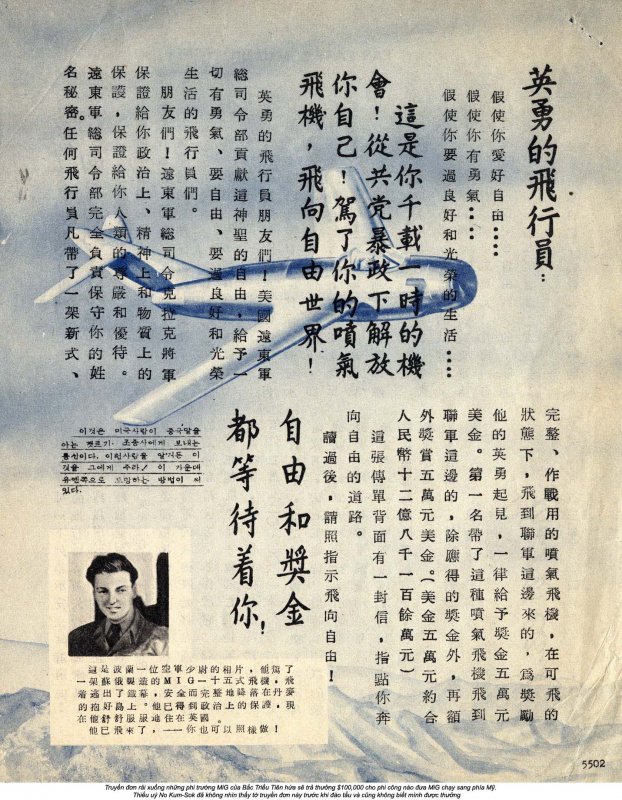 英勇的飛行員：
假使你愛好自由……
假使你有勇氣……
假使你要過良好和光榮的生活……
這是你千載一時的機
會！從共党暴政下解放
你自己！駕了你的噴氣
飛機，飛向自由世界！
英勇的飛行員朋友們！美國遠東軍
總司令部貢獻這神聖的自由，給予一
切有勇氣、要自由、要過良好和光榮
生活的飛行員們。
朋友們！遠東軍總司令克拉克將軍
保證給你政治上、精神上和物質上的
保護，保證給你人類的尊嚴和優待。
遠東軍總司令部完全負責保守你的姓
名秘密。任何飛行員凡帶了一架新式、
完整、作戰用的噴氣飛機，在可飛的
狀態下，飛到聯軍這邊來的，爲獎勵
他的英勇起見，一律給予獎金五萬元
美金。第一名帶了這種噴氣飛機飛到
聯軍這邊的，除應得的獎金外，再額
外獎賞五萬元美金。（美金五萬元約合
人民幣十二億八千一百餘萬元）
這張傳單背面有一封信，指點你奔
向自由的道路。
讀過後，請照指示飛向自由！
自由和獎金
都等待着你！
이것은 미국사람이 중국말을
아는 조종사에게 보내는
통신이다. 이런사람을 알거든 이
것을 그에게 주라! 이 가운데
유엔쪽으로 도망하는 방법이 써
있다.
這是波蘭一位空軍少尉的相片，他駕了
一架蘇俄製造的MIG一十五式飛機，飛
着逃出了鐵幕，安全而完整地降落在丹麥
的抱好島上。他已得到政治上的保護，現
在他舒舒服服進住在英國。
他已飛來了，——你也可以照樣做！
5502
Truyền đơn rải xuống những phi trường MIG của Bắc Triều Tiên hứa sẽ trả thưởng $100,000 cho phi công nào đưa MIG chạy sang phía Mỹ.
Thiếu uý No Kum-Sok đã không nhìn thấy tờ truyền đơn này trước khi đào tẩu và cũng không biết mình được thưởng